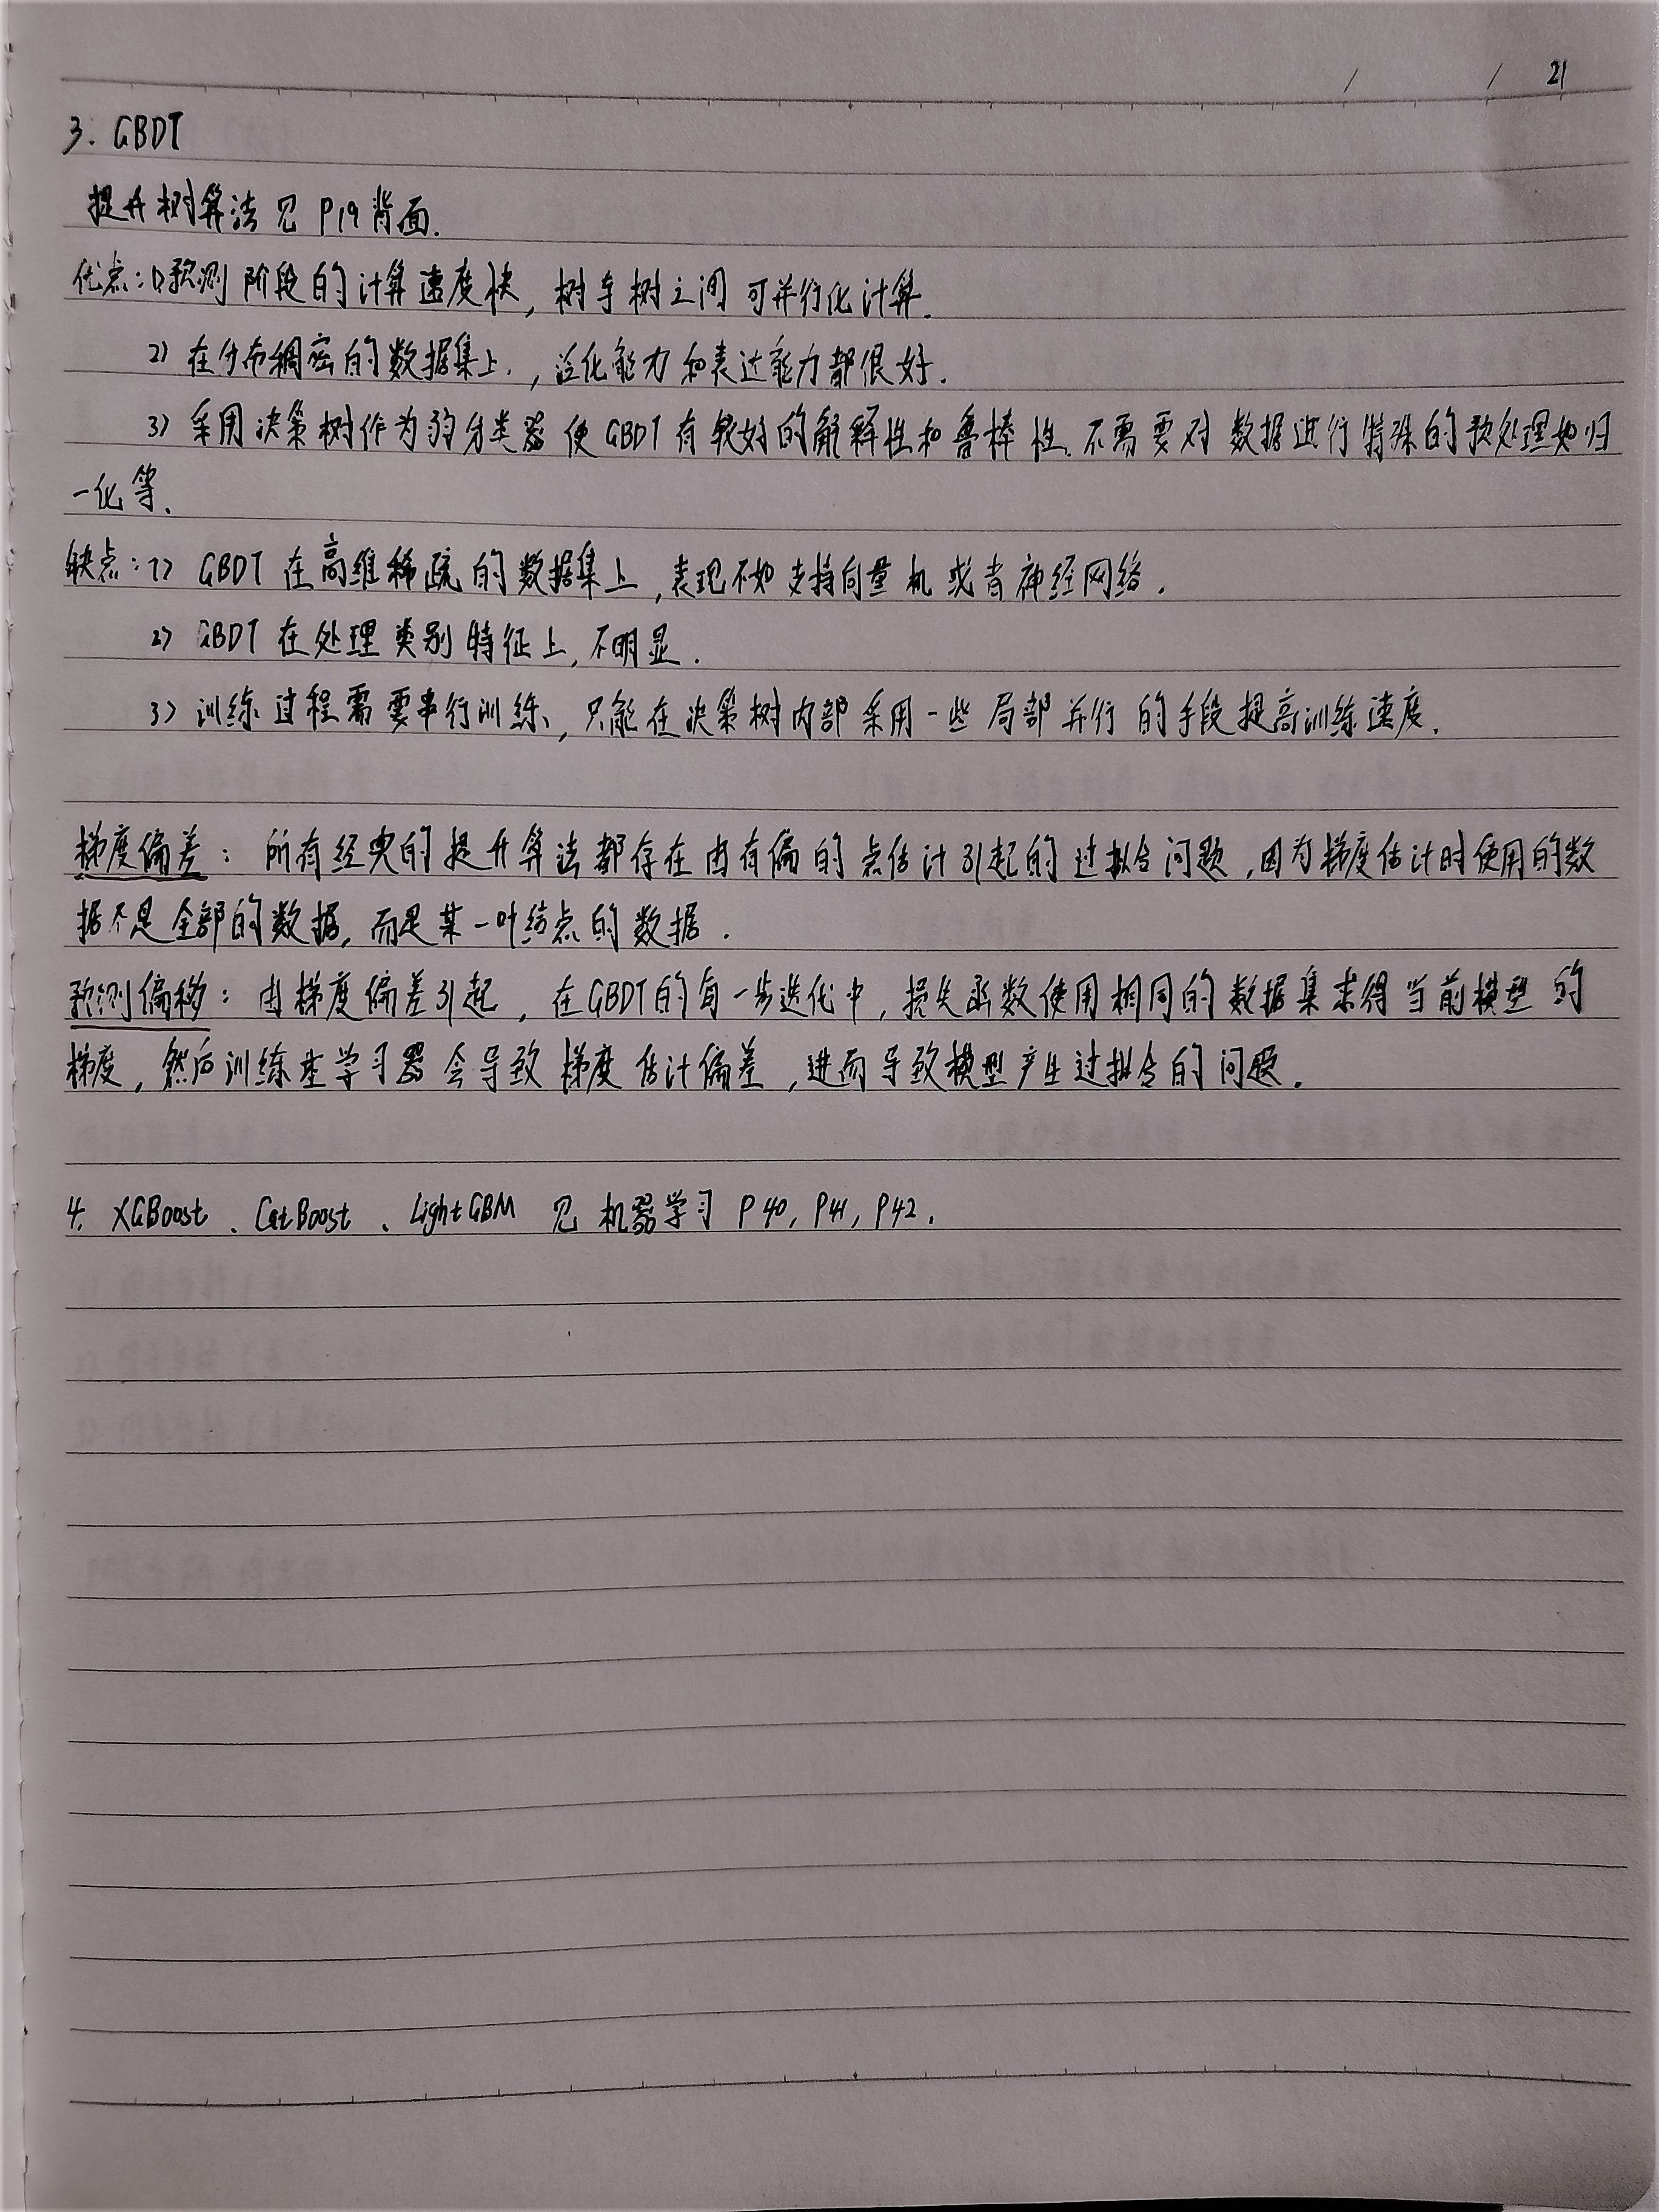 21
3. GBDT
提升树算法见 P19 背面.
优点:1)预测阶段的计算速度快, 树与树之间可并行化计算.
2) 在分布稠密的数据集上, 泛化能力和表达能力都很好.
3) 采用决策树作为弱分类器使GBDT有较好的解释性和鲁棒性.不需要对数据进行特殊的预处理如归
一化等.
缺点:1) GBDT在高维稀疏的数据集上,表现不如支持向量机或者神经网络.
2) GBDT在处理类别特征上,不明显.
3) 训练过程需要串行训练,只能在决策树内部采用一些局部并行的手段提高训练速度.
梯度偏差: 所有经典的提升算法都存在由有偏的点估计引起的过拟合问题,因为梯度估计时使用的数
据不是全部的数据,而是某一叶结点的数据.
预测偏移: 由梯度偏差引起, 在GBDT的每一步迭代中,损失函数使用相同的数据集求得当前模型的
梯度,然后训练基学习器会导致梯度估计偏差,进而导致模型产生过拟合的问题.
4. XGBoost、CatBoost、LightGBM 见 机器学习 P40, P41, P42.